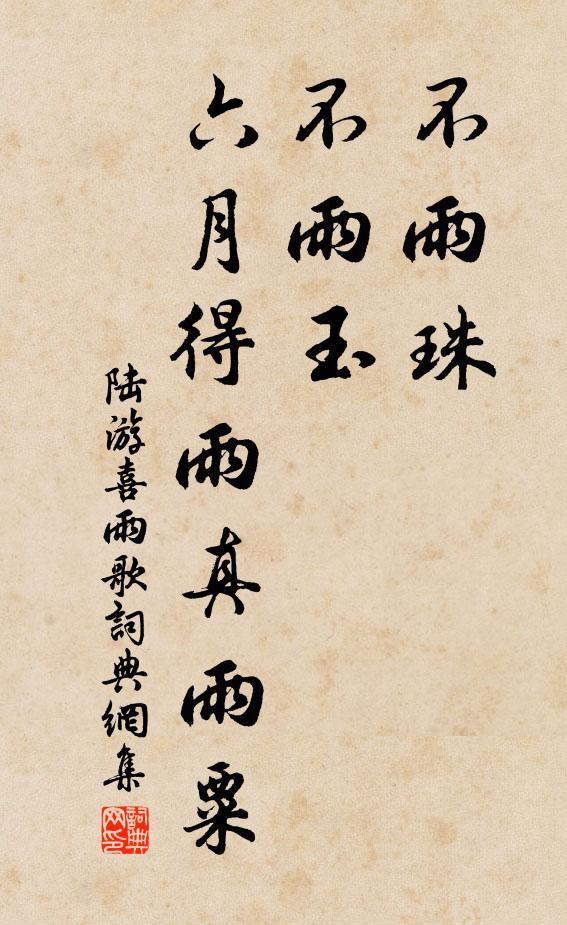 不雨珠
不雨玉
六月得雨真雨粟
陆游喜雨歌詞典網集
詞典
网印